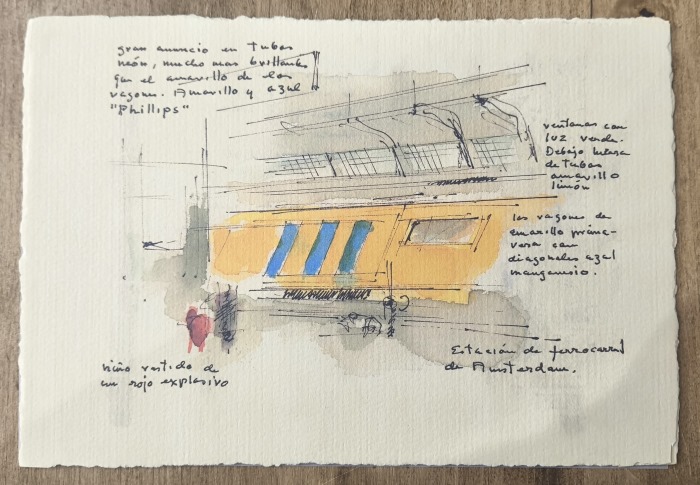 gran anuncio en tubos
neón, mucho mas brillante
que el amarillo de los
vagones. Amarillo y azul
"Phillips"
ventanas con
luz verde.
Debajo hilera
de tubos
amarillo
limón
los vagones de
amarillo prima-
vera con
diagonales azul
manganesio.
Estación de ferrocarril
de Amsterdam.
niño vestido de
un rojo explosivo